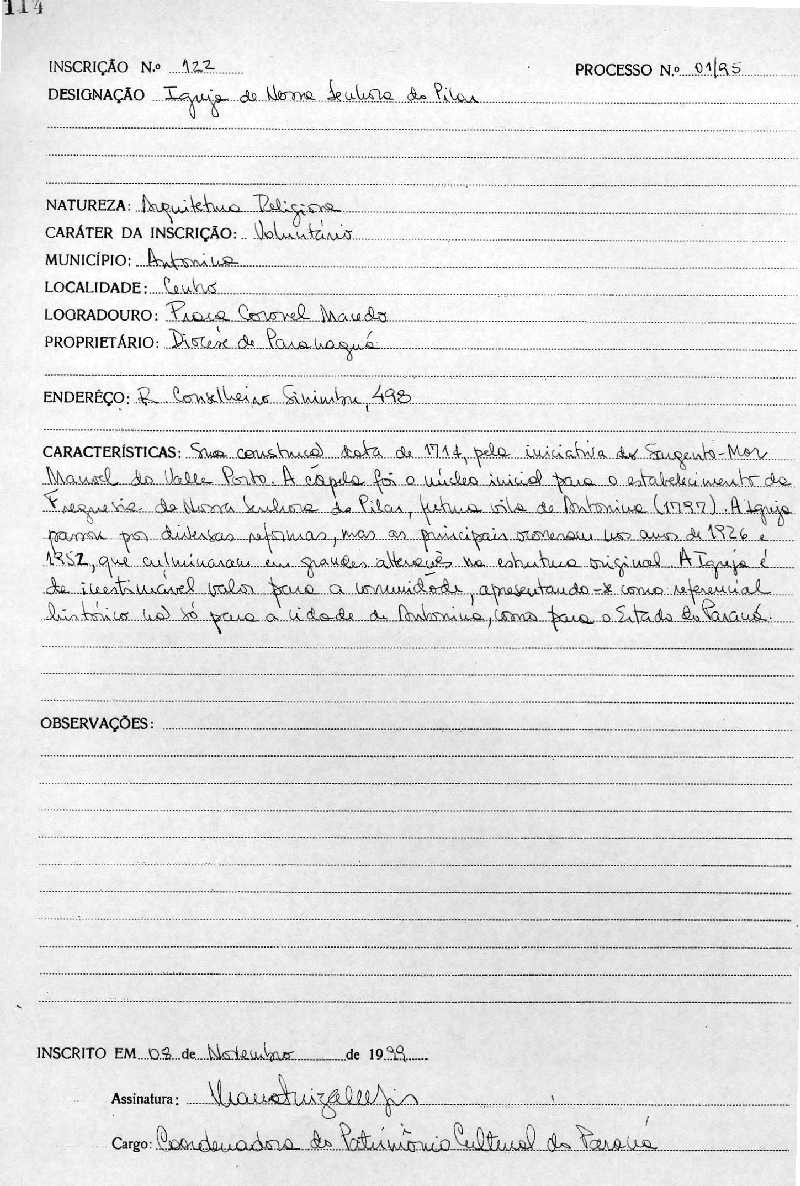 114
INSCRIÇÃO N.º 122 PROCESSO N.º 01/95
DESIGNAÇÃO Igreja de Nossa Senhora do Pilar
NATUREZA: Arquitetura Religiosa
CARÁTER DA INSCRIÇÃO: Voluntário
MUNICÍPIO: Antonina
LOCALIDADE: Centro
LOGRADOURO: Praça Coronel Macedo
PROPRIETÁRIO: Diocese de Paranaguá
ENDERÊÇO: R. Conselheiro Sinimbu, 498
CARACTERÍSTICAS: Sua construção data de 1714, pela iniciativa do Sargento-Mor
Manoel do Valle Porto. A capela foi o núcleo inicial para o estabelecimento da
Freguesia de Nossa Senhora do Pilar, futura vila de Antonina (1797). A Igreja
passou por diversas reformas, mas as principais ocorreram nos anos de 1926 e
1952, que culminaram em grandes alterações na estrutura original. A Igreja é
de inestimável valor para a comunidade, apresentando-se como referencial
histórico não só para a cidade de Antonina, como para o Estado do Paraná.
OBSERVAÇÕES:
INSCRITO EM 08 de Novembro de 1999
Assinatura:
Cargo: Coordenadora do Patrimônio Cultural do Paraná